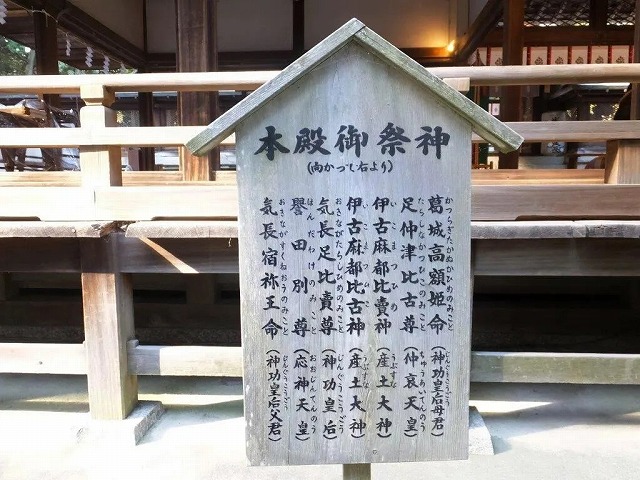 本殿御祭神
(向かって右より)
かつらぎたかぬかひめのみこと じんぐうこうごう
葛城高額姫命(神功皇后母君)
たらしなかつひこのみこと ちゅうあいてんのう
足仲津比古尊(仲哀天皇)
いこまつひめ うぶすな
伊古麻都比賣神(産土大神)
いこまつひこ うぶすな
伊古麻都比古神(産土大神)
おきながたらしひめのみこと じんぐうこうごう
気長足比賣尊(神功皇后)
ほんだわけのみこと おおじんてんのう
譽田別尊(応神天皇)
おきながすくねおうのみこと じんぐうこうごう
気長宿祢王命(神功皇后父君)